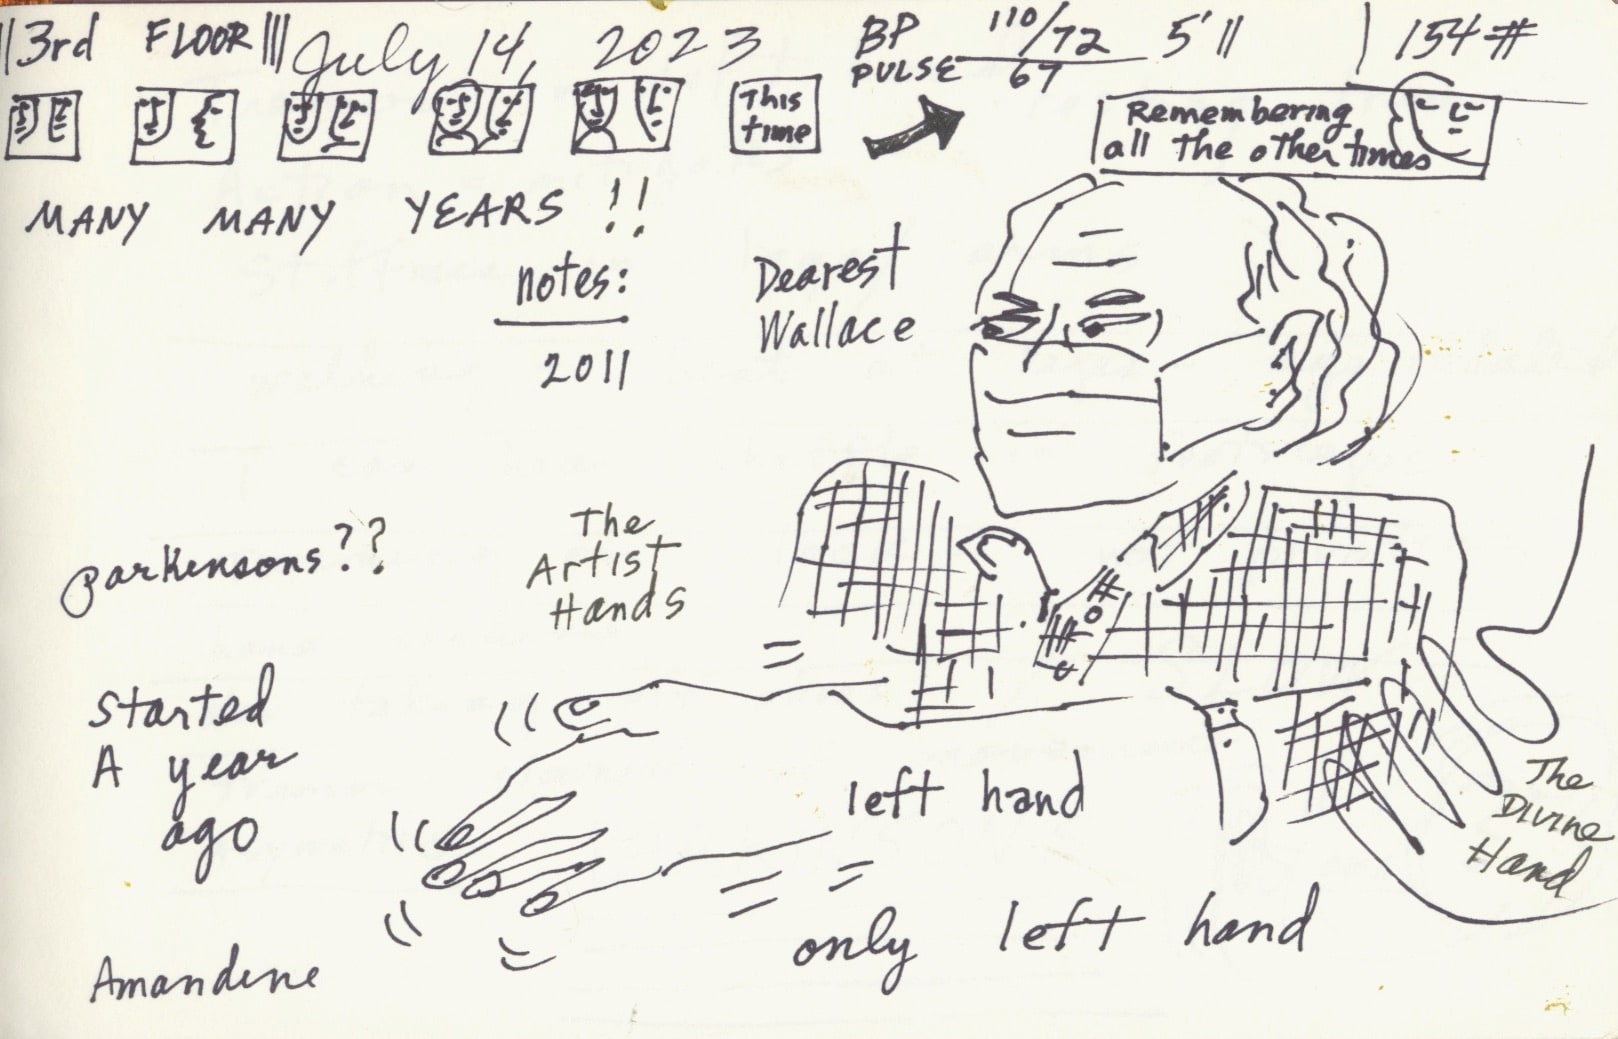 3rd FLOOR July 14, 2023
BP 110/72 5'11 154#
PULSE 67
This
time
Remembering
all the other times
MANY MANY YEARS !!
notes:
2011
Dearest
Wallace
parkensons??
The
Artist
Hands
started
A year
ago
left hand
The
Divine
Hand
only left hand
Amandine